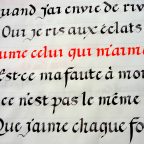 Quand j'ai envie de riv
Oui je ris aux éclats
aime celui qui m'aime
Est-ce ma faute à moi
ce n'est pas le même
Que j'aime chaque fo